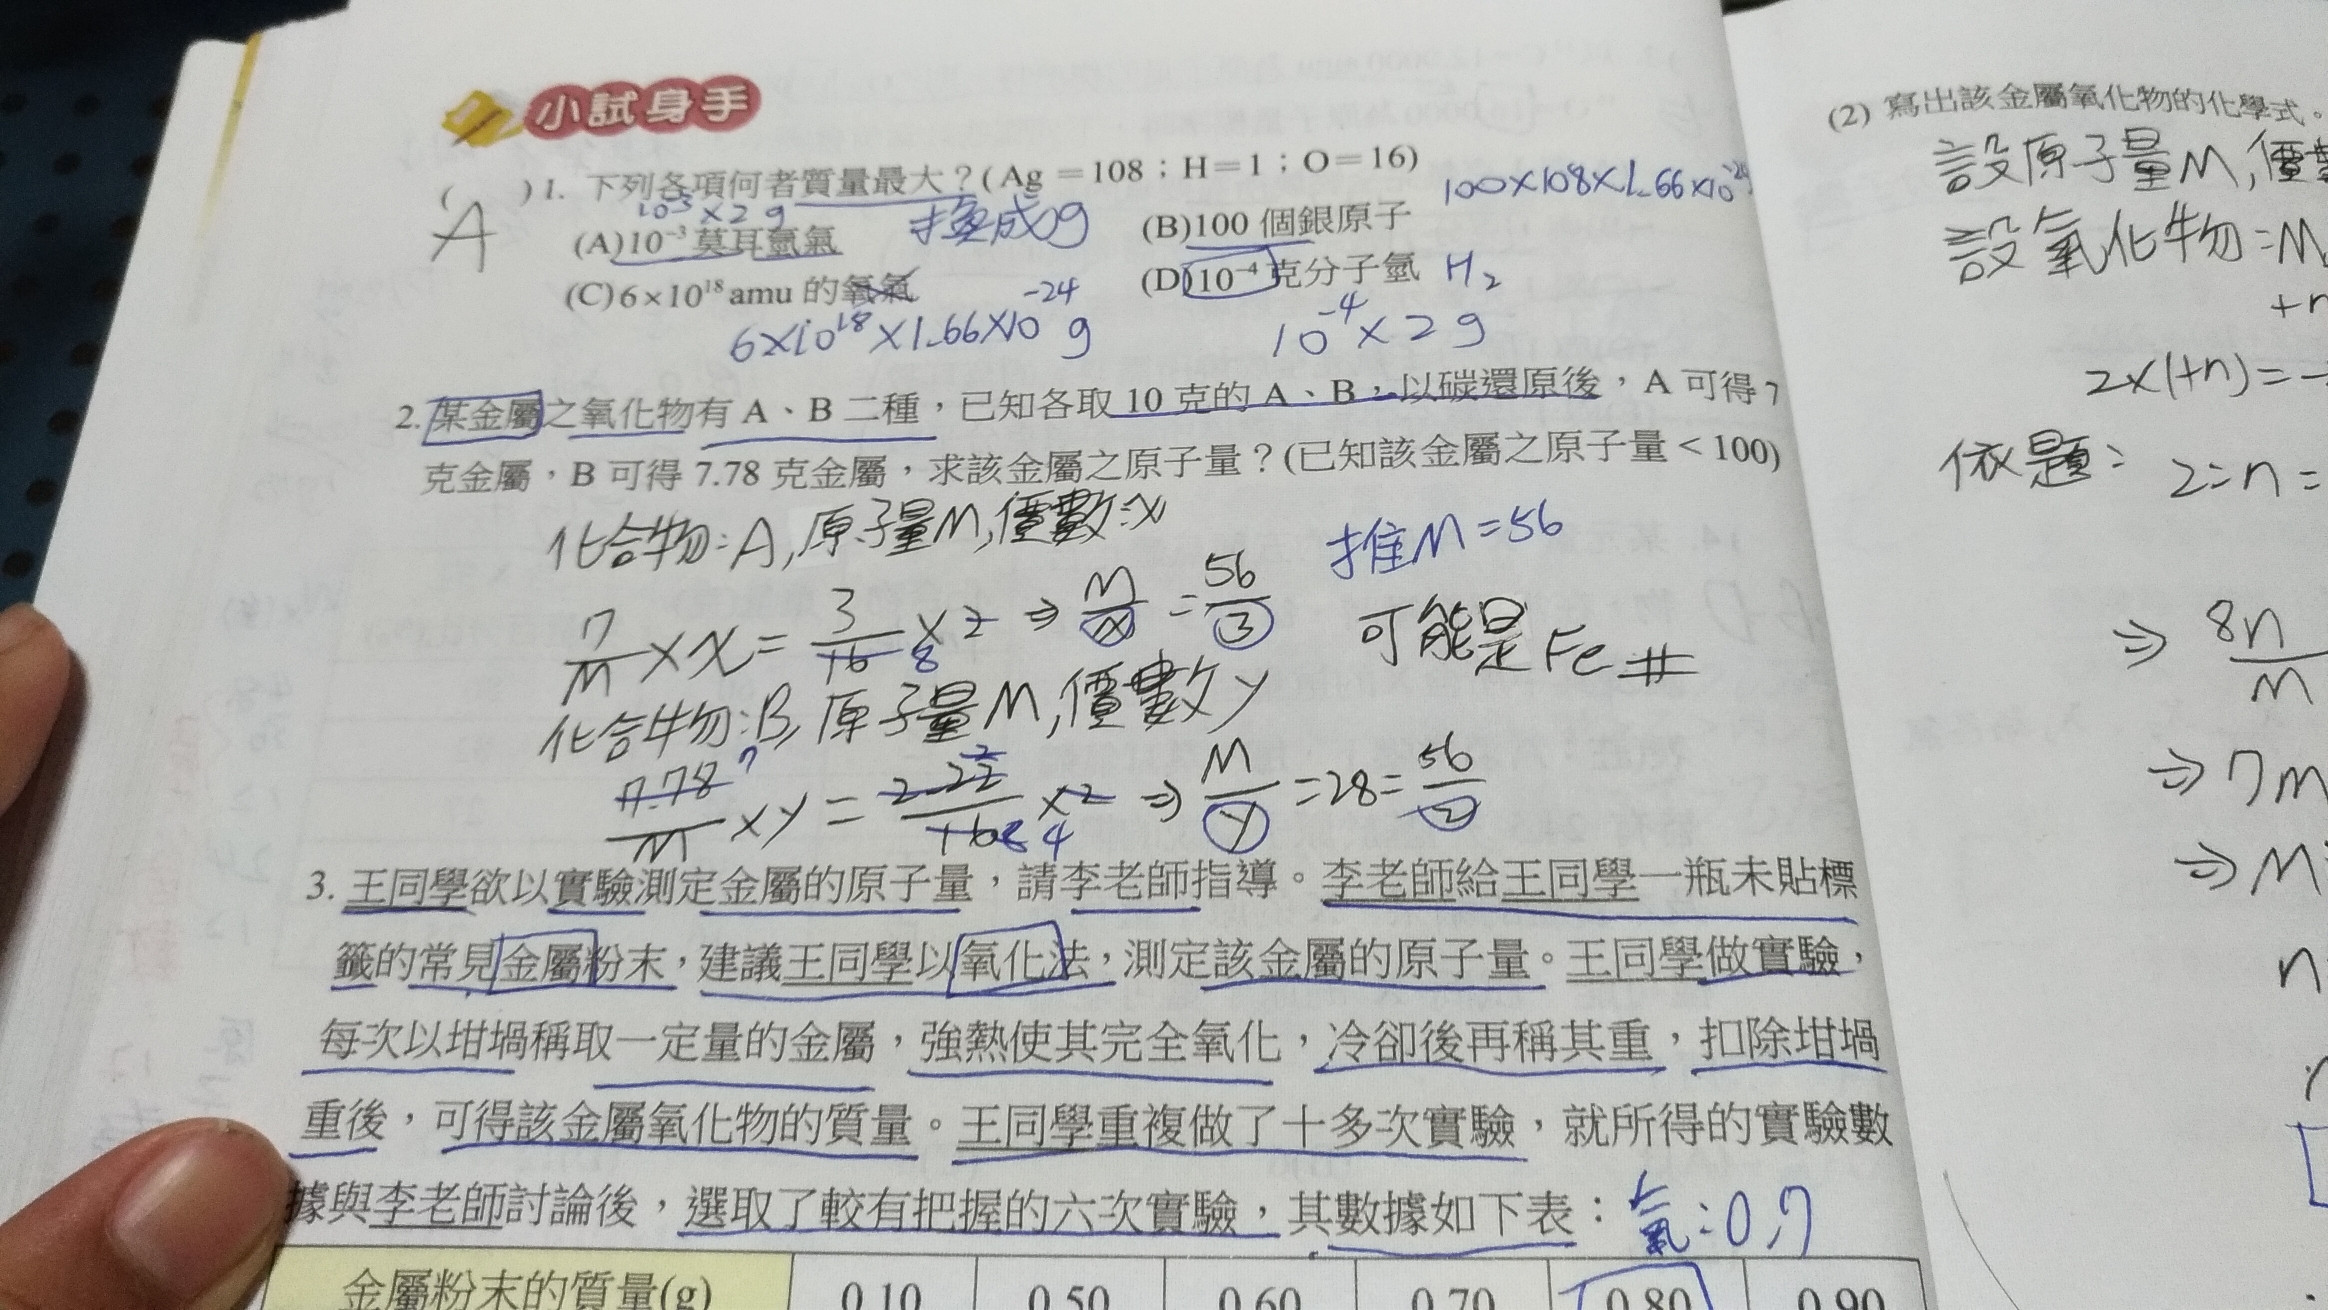 小試身手
( A )1. 下列各項何者質量最大？(Ag＝108；H＝1；O＝16)
100×108×1.66×10⁻²⁴
10⁻³×2g
換成g
(A)10⁻³莫耳氫氣
(B)100 個銀原子
(C)6×10¹⁸amu 的氧氣
(D)10⁻⁴克分子氫 H₂
6×10¹⁸×1.66×10⁻²⁴g
10⁻⁴×2g
2. 某金屬之氧化物有 A、B 二種，已知各取 10 克的 A、B，以碳還原後，A 可得 7
克金屬，B 可得 7.78 克金屬，求該金屬之原子量？(已知該金屬之原子量＜100)
化合物:A,原子量M,價數:x
推M=56
7/M×x=3/16 8×2⇒M/x=56/3
可能是Fe#
化合物:B,原子量M,價數y
7.78 7/M×y=2.22 2/16 8 4×2⇒M/y=28=56/2
3. 王同學欲以實驗測定金屬的原子量，請李老師指導。李老師給王同學一瓶未貼標
籤的常見金屬粉末，建議王同學以氧化法，測定該金屬的原子量。王同學做實驗，
每次以坩堝稱取一定量的金屬，強熱使其完全氧化，冷卻後再稱其重，扣除坩堝
重後，可得該金屬氧化物的質量。王同學重複做了十多次實驗，就所得的實驗數
據與李老師討論後，選取了較有把握的六次實驗，其數據如下表：
氧:0.7
金屬粉末的質量(g) 0.10 0.50 0.60 0.70 0.80 0.90
(2) 寫出該金屬氧化物的化學式。
設原子量M,價
設氧化物:M
+n
2×(+n)=-
依題:2:n=
⇒8n/M
⇒7M
⇒M
n